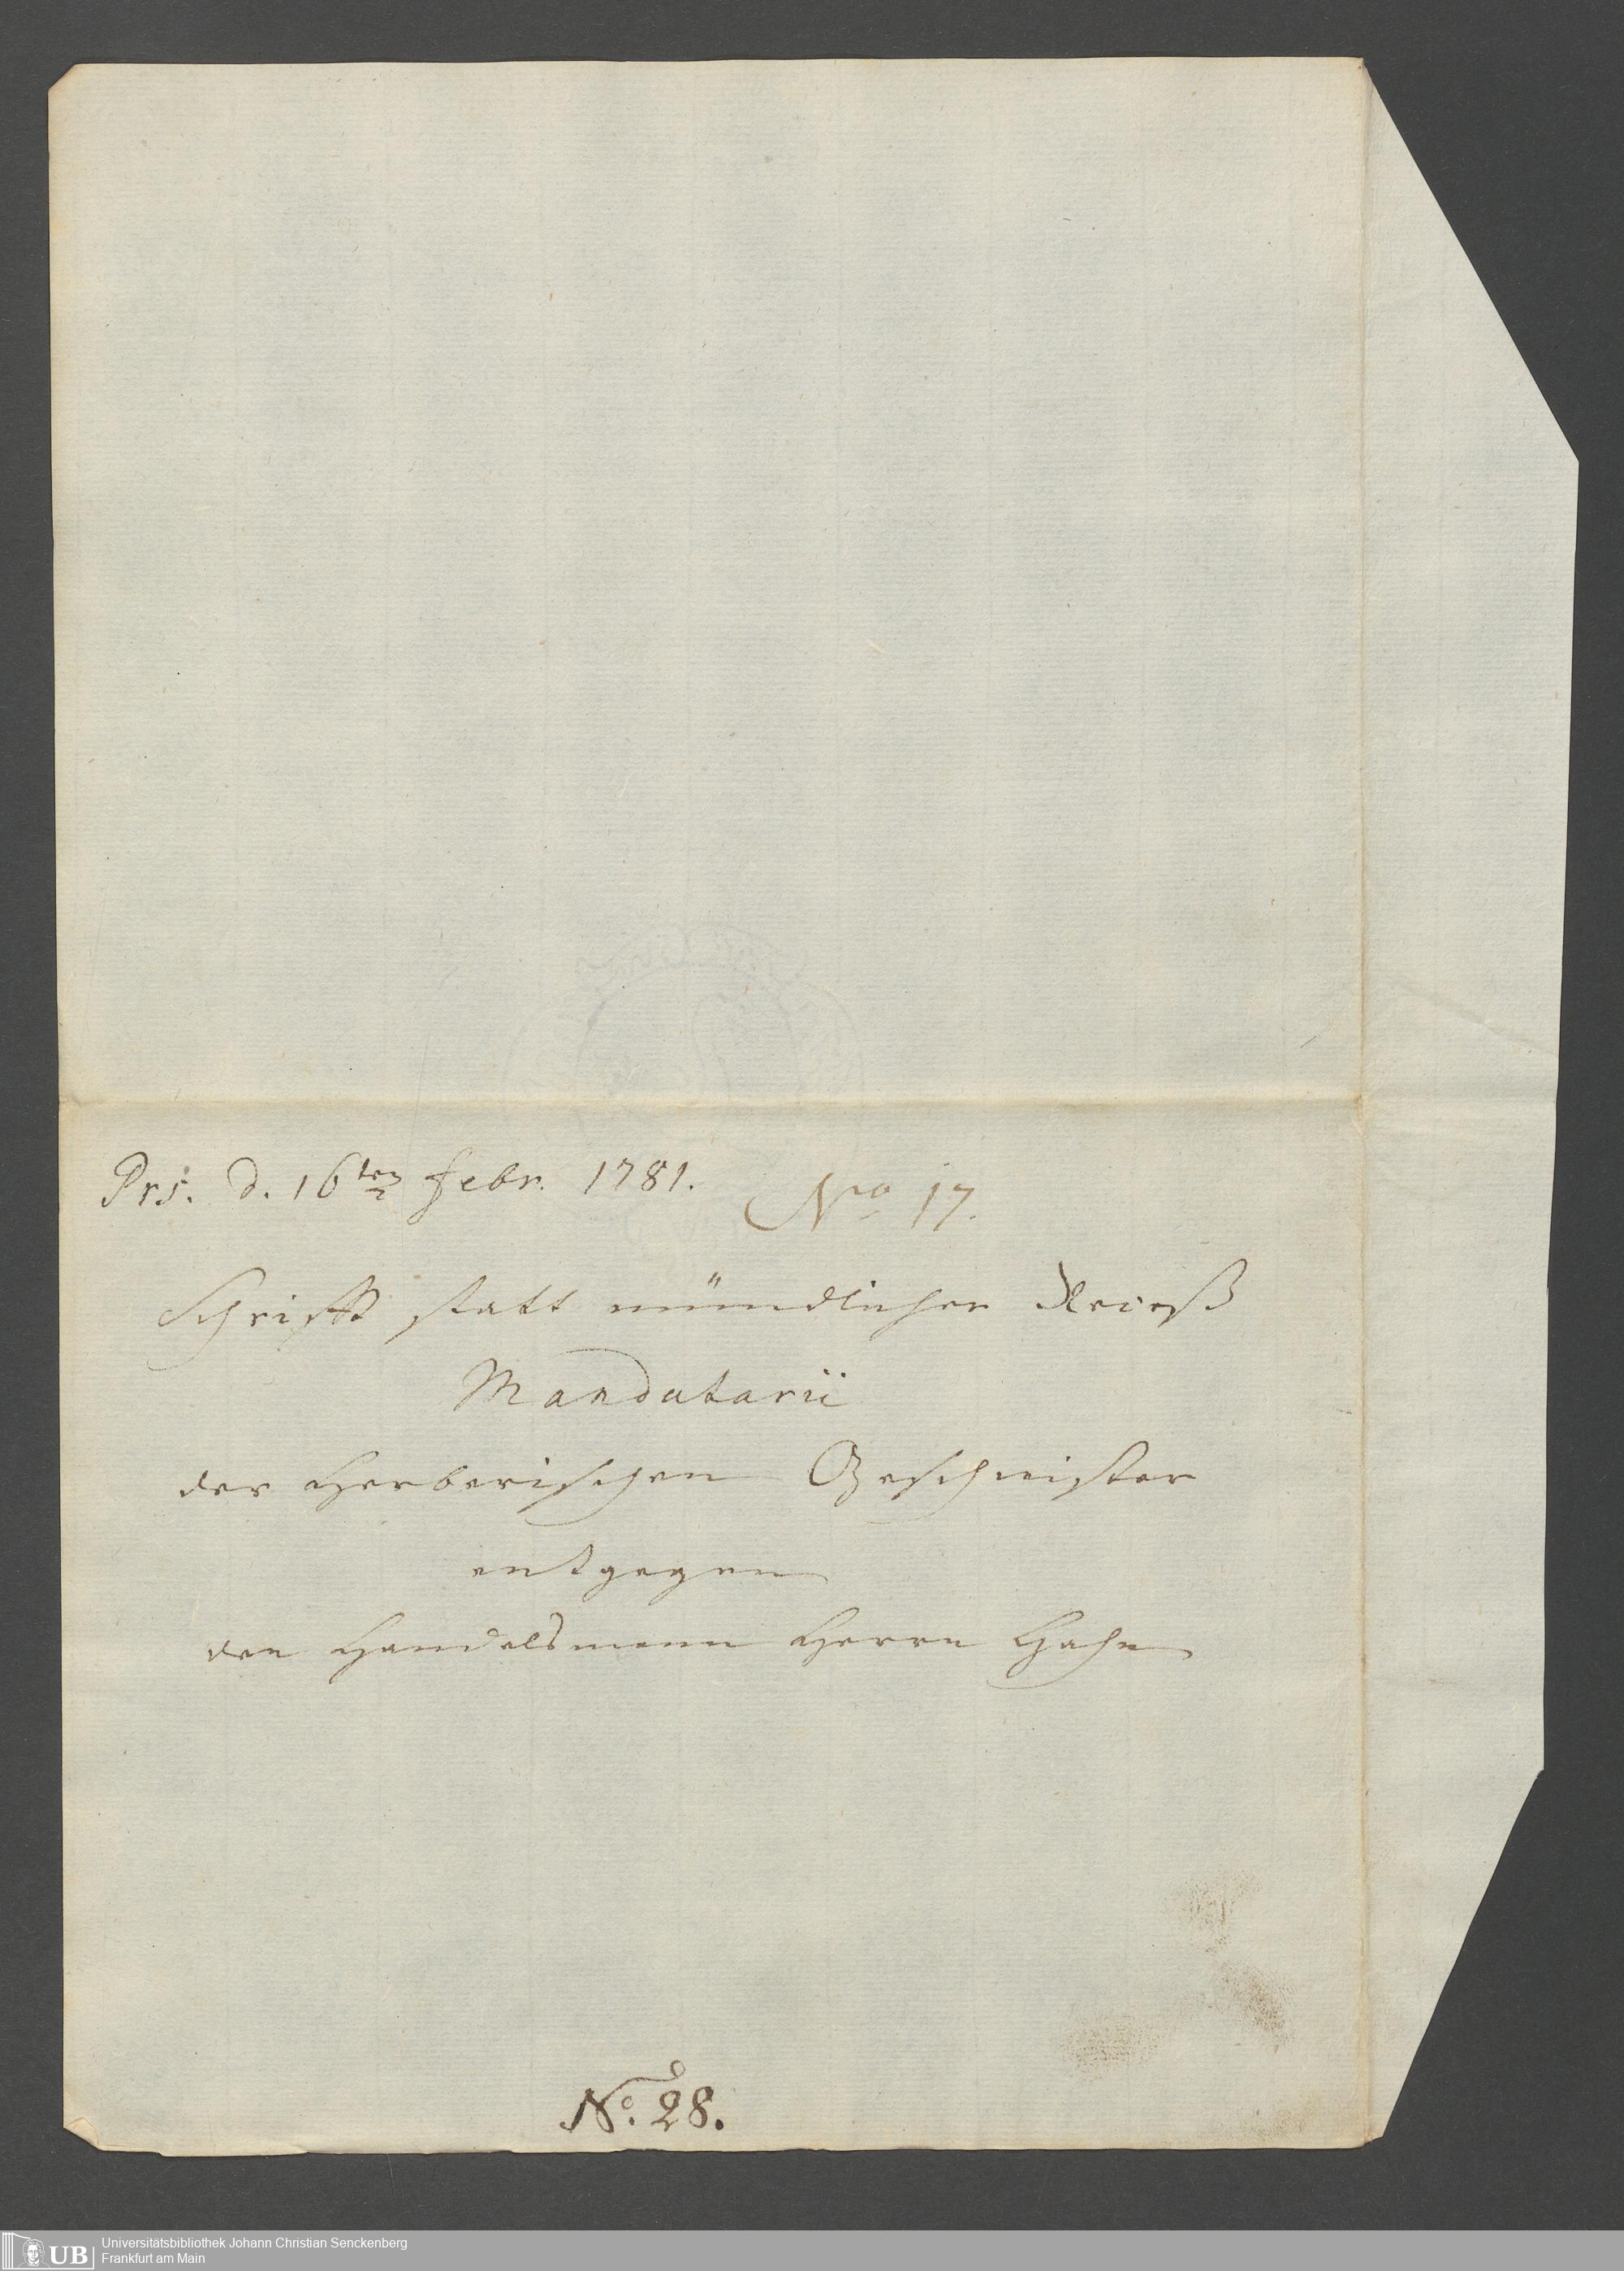 Prs. d. 16ten febr. 1781.
Nro 17.
Schrifft statt mündlicher Receß
Mandatarii
der Herberischen Geschwister
entgegen
den Handelsmann Herrn Hahn
No. 28.
UB
Universitätsbibliothek Johann Christian Senckenberg
Frankfurt am Main